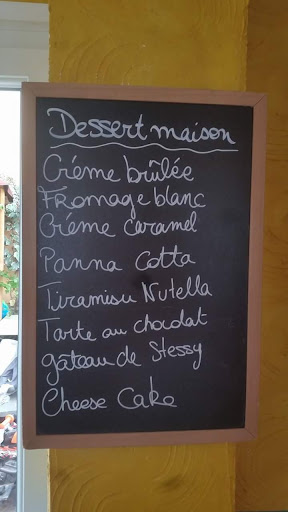 Dessert maison
Créme brûlée
Fromage blanc
Créme caramel
Panna Cotta
Tiramisu Nutella
Tarte au chocolat
gâteau de Stessy
Cheese Cake